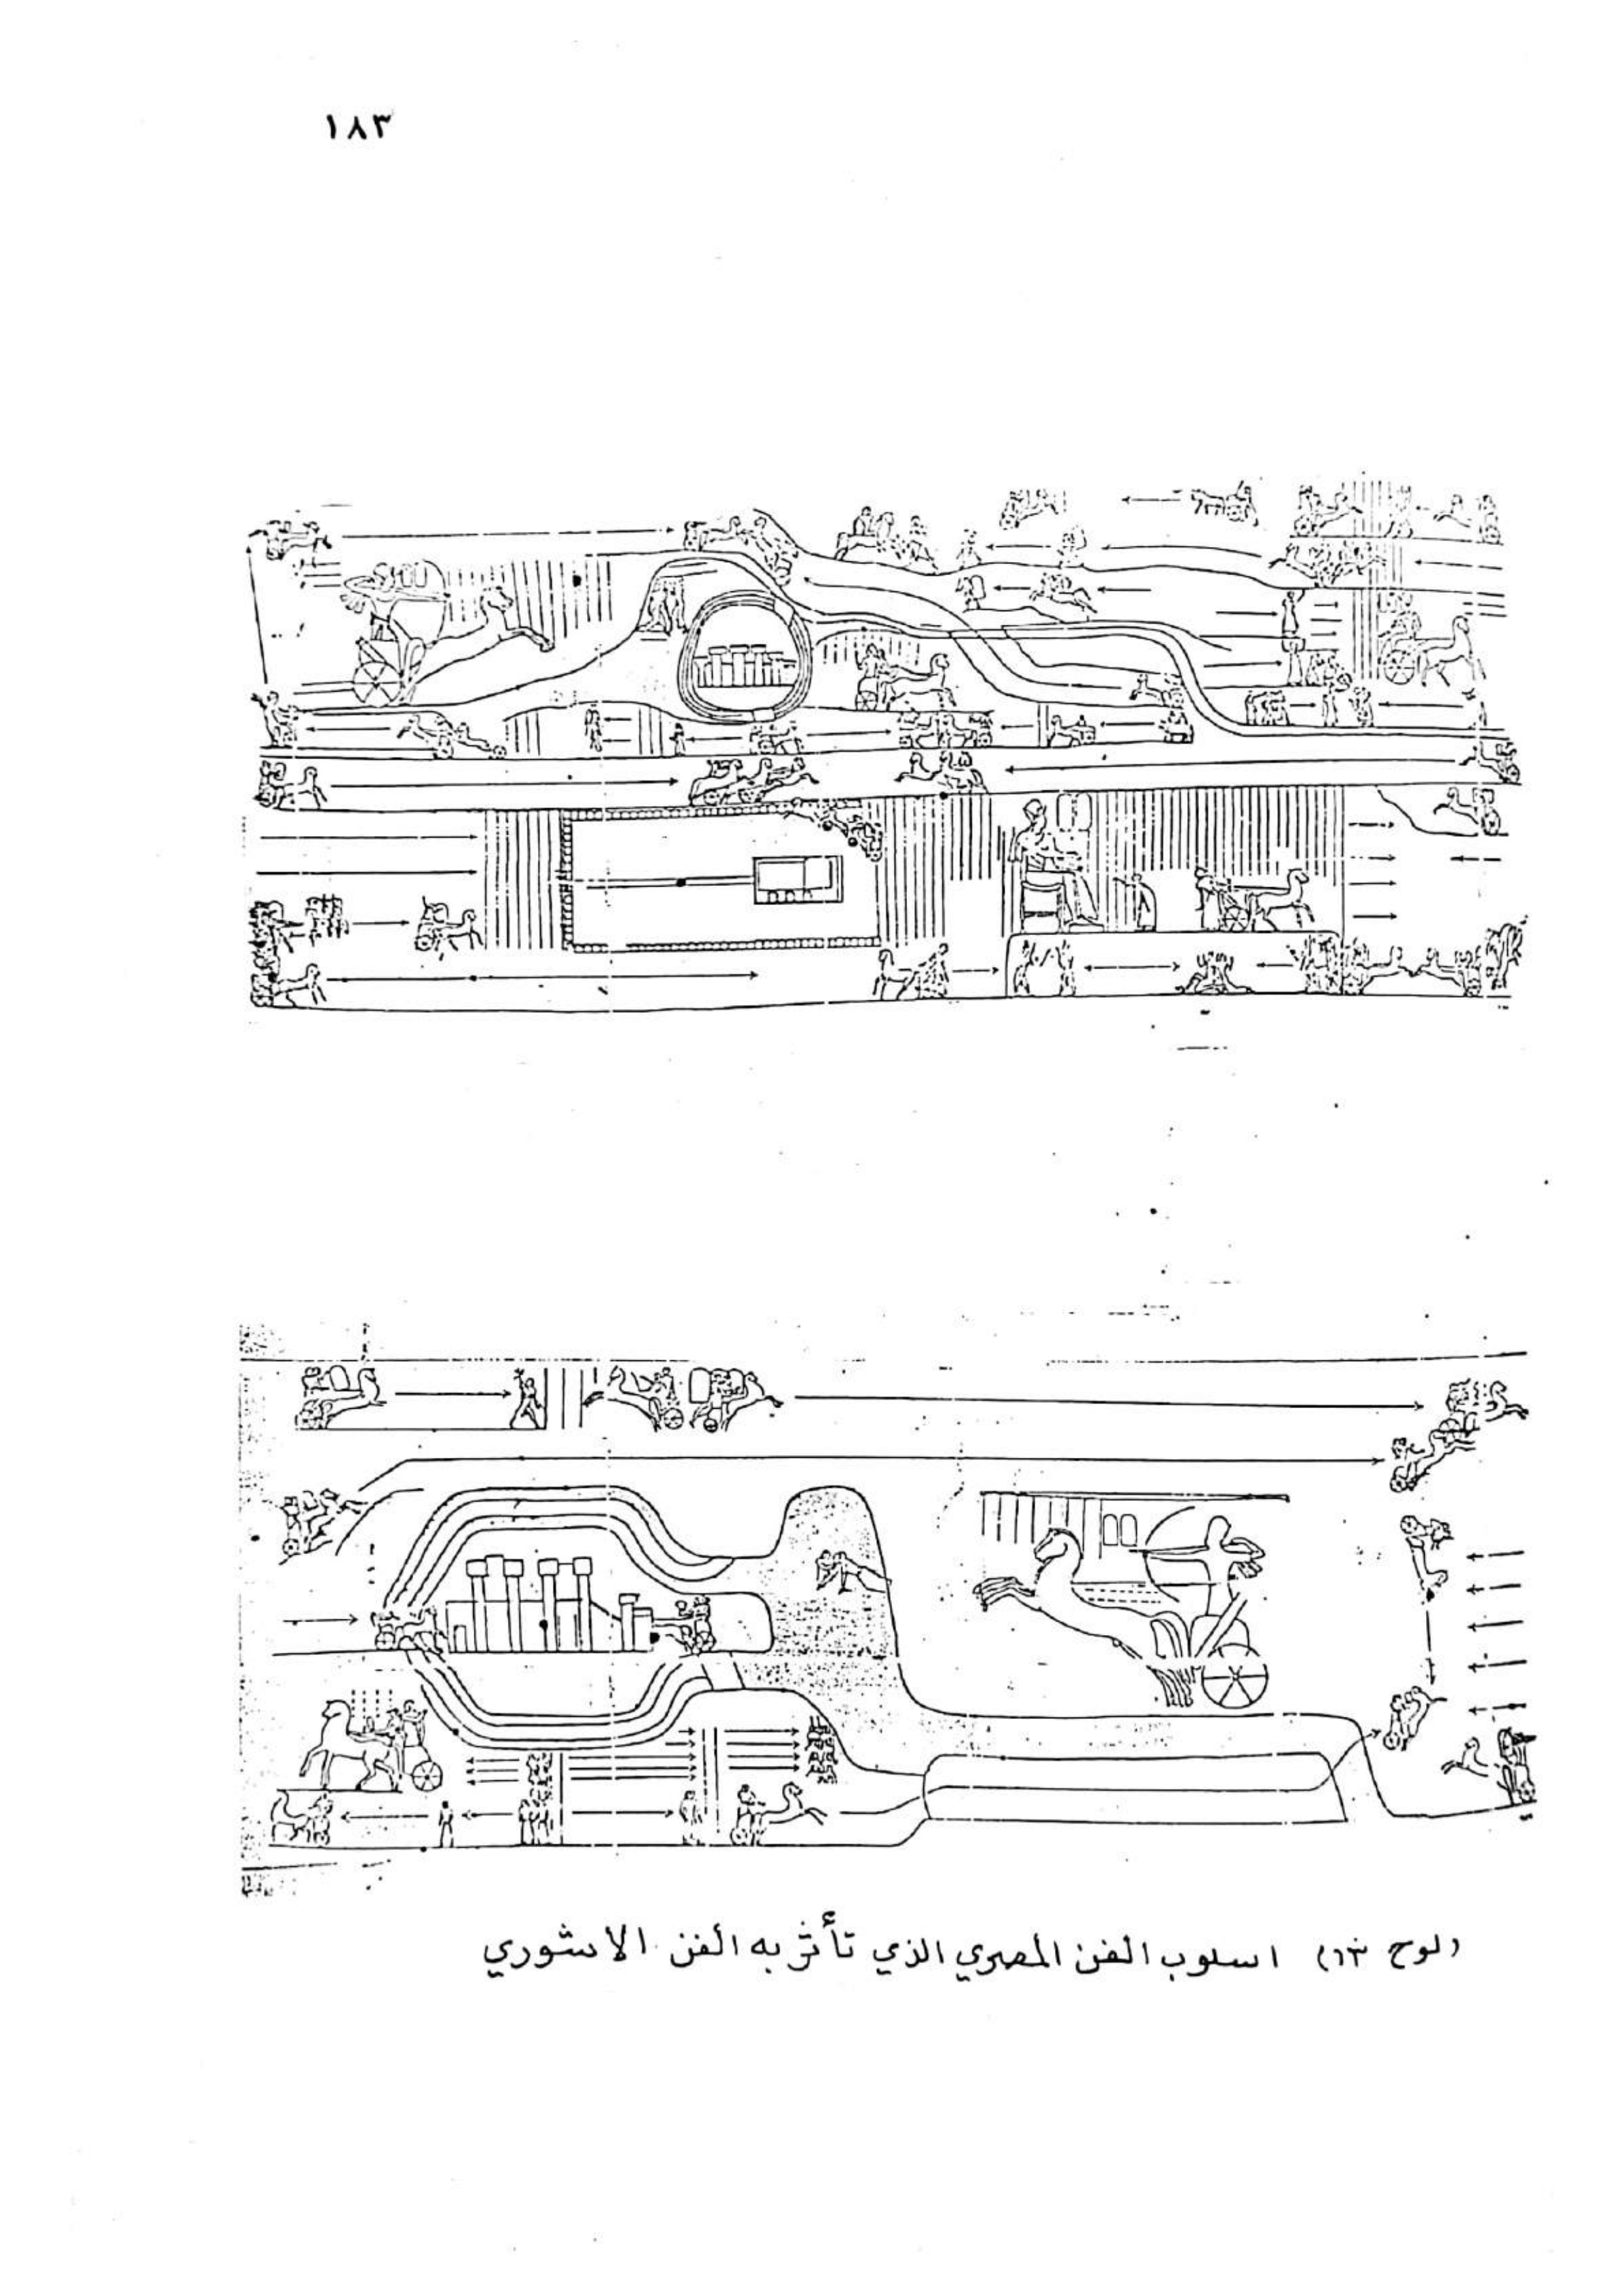 ١٨٣
(لوح ١٣) اسلوب الفن المصري الذي تأثر به الفن الاشوري